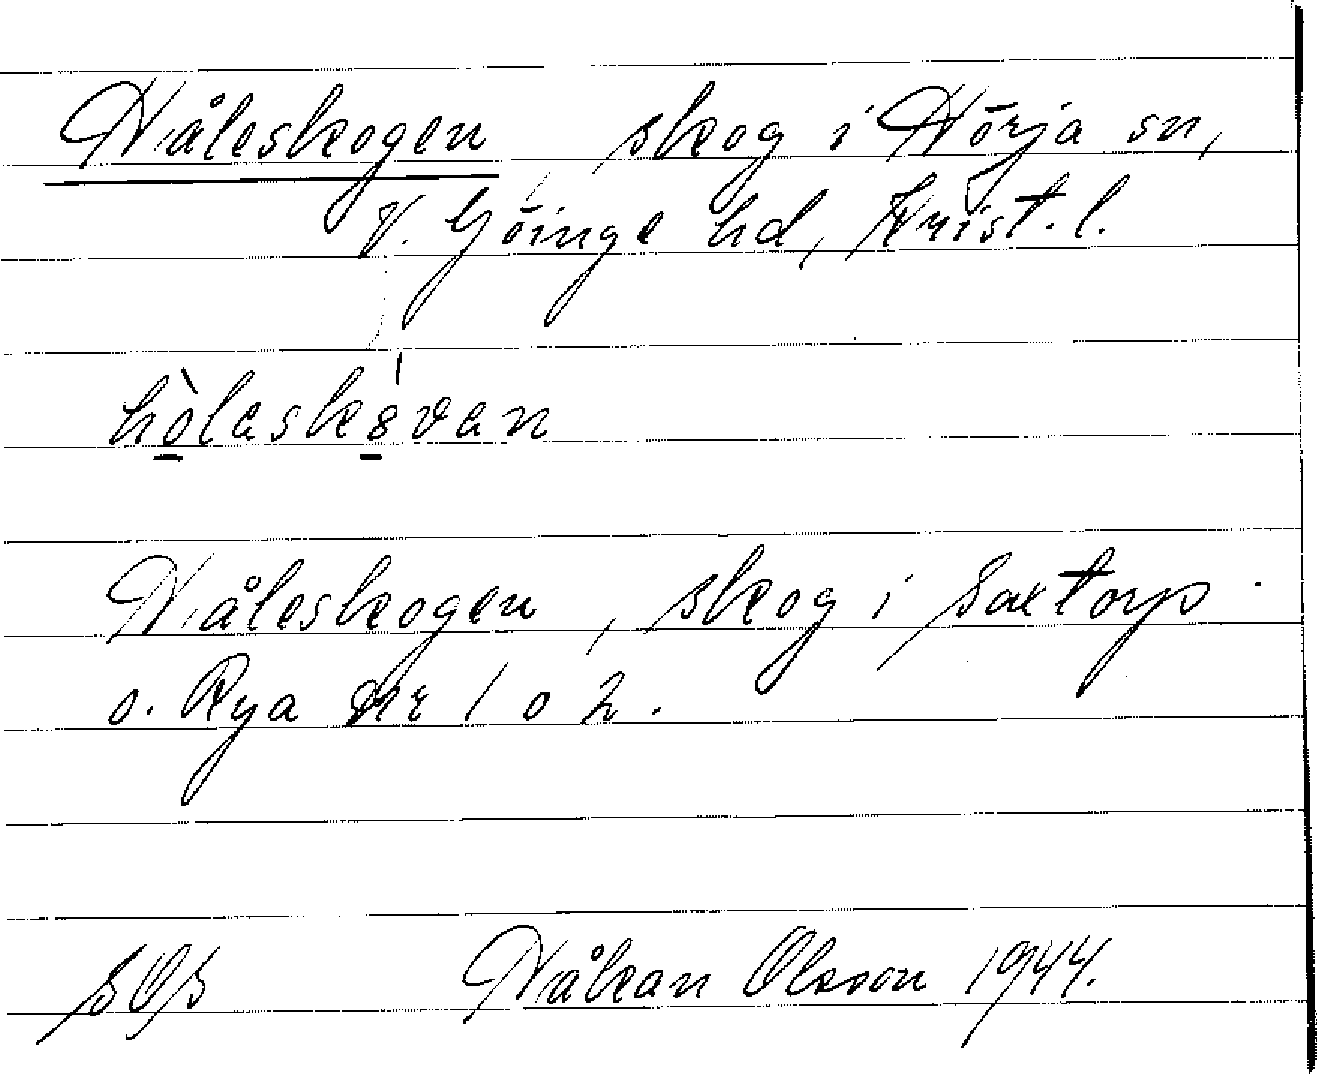 Håleskogen skog i Hörja sn,
V. Göinge hd, Krist. l.
hòlasks̀van
Håleskogen, skog i Saxtorp
o. Rya nr 1 o 2.
SOS Håkan Olsson 1944.